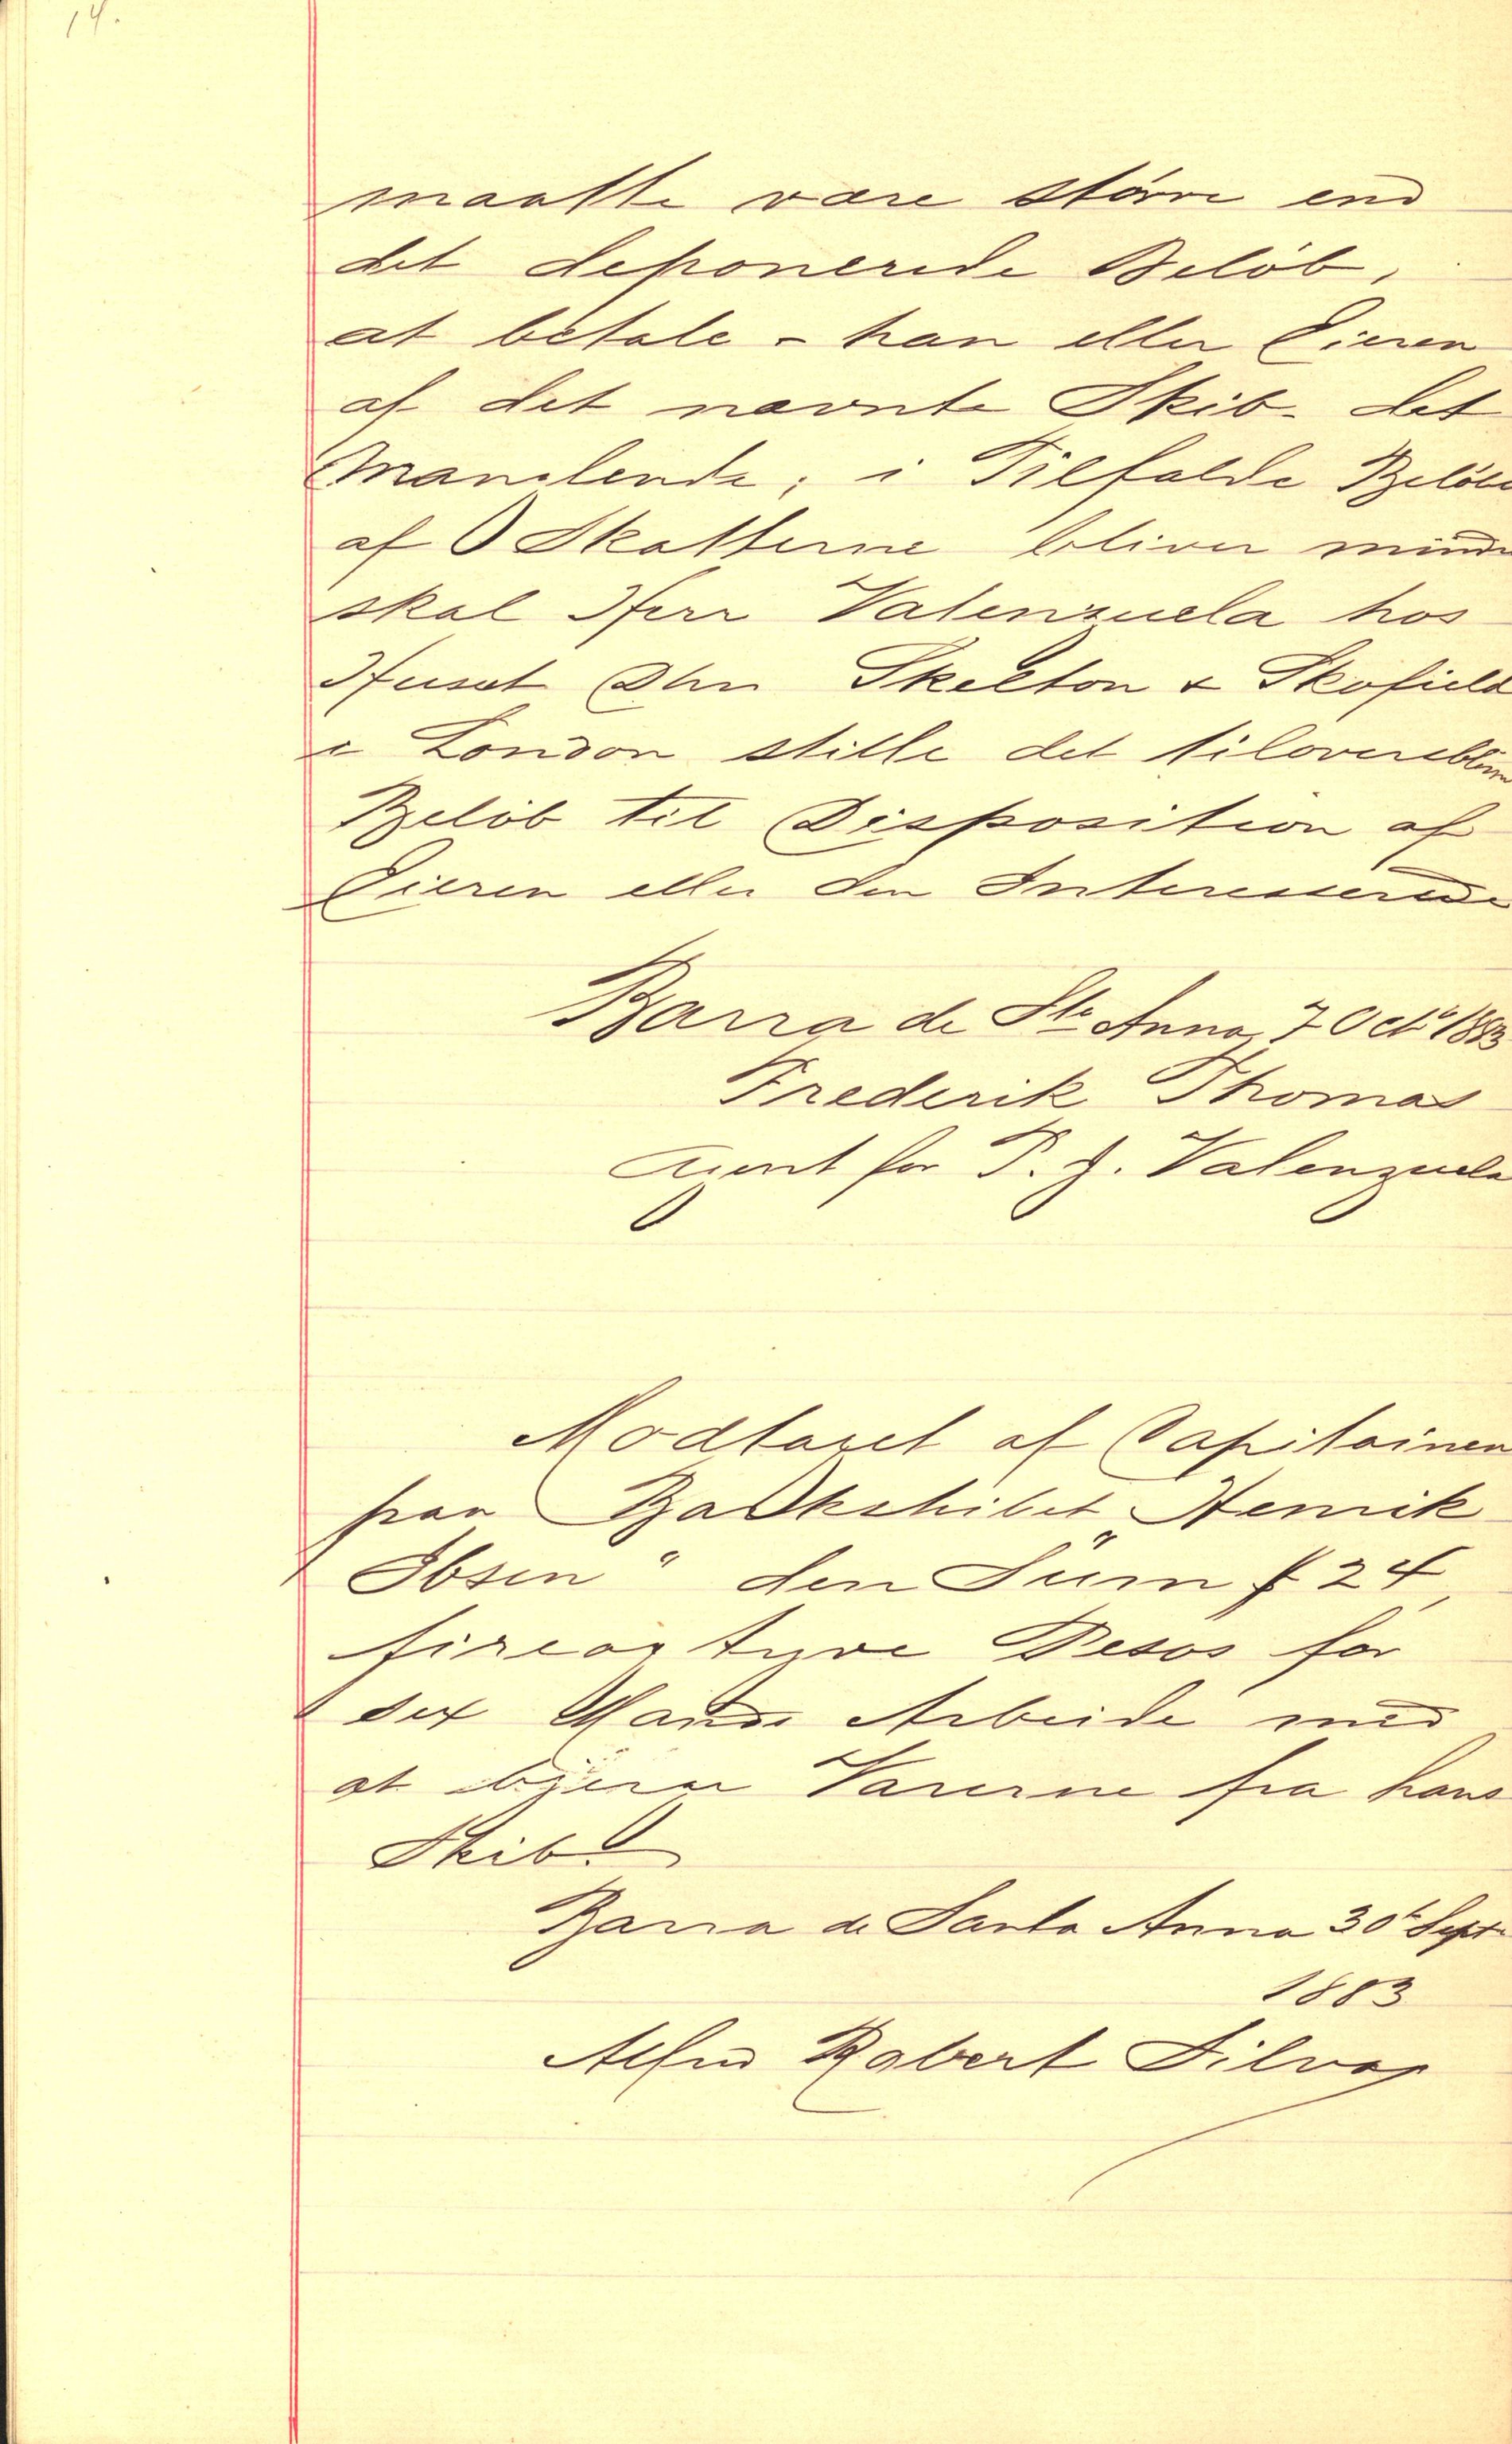 14.
maatte være större end
det deponerede Belöb,
at betale - han eller Eieren
af det nævnte Skib - det
Manglende; i Tilfælde Belöbet
af Skatterne bliver mindre
skal Herr Valenzuela hos
Huset Skelton & Skofield
i London stille det tiloversblevne
Belöb til Disposition af
Eieren eller den Interesserede
Barra de Sta Anna, 7 Octo 1883
Frederik Thomas
Agent for P. J. Valenzuela
Modtaget af Capitainen
paa Barkskibet „Henrik
Ibsen" den Sum $ 24,
fireogtyve Pesos for
sex Mands Arbeide med
at bjerge Varerne fra hans
Skib.
Barra de Santa Anna 30te Septr
1883
Alfred Robert Silvas